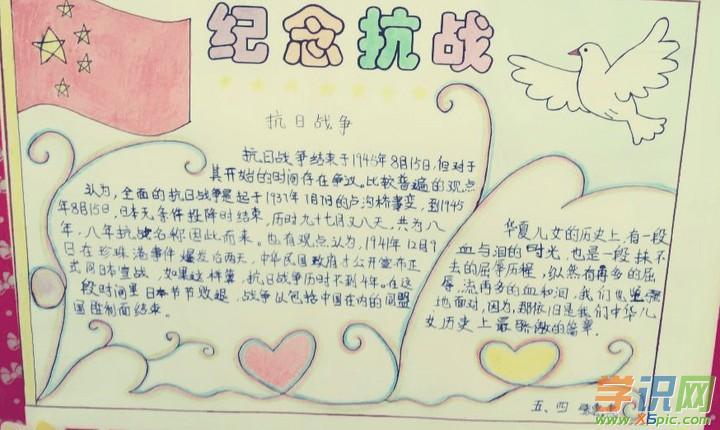 纪念抗战
抗日战争
抗日战争结束于1945年8月15日,但对于
其开始的时间存在争议。比较普遍的观点
认为,全面的抗日战争是起于1937年7月7日的卢沟桥事变,到1945
年8月15日,日本无条件投降时结束,历时九十七月又八天,共为八
年,八年抗战名称因此而来。也有观点认为,1941年12月9
日在珍珠港事件爆发后两天,中华民国政府才公开宣布正
式向日本宣战,如果这样算,抗日战争历时不到4年。在这
段时间里日本节节败退,战争以包括中国在内的同盟
国胜利而结束。
华夏儿女的历史上,有一段
血与泪的时光,也是一段抹不
去的屈辱历程,纵然有再多的屈
辱,流再多的血和泪,我们也坚强
地面对,因为,那依旧是我们中华儿
女历史上最骄傲的篇章。
五、四
学识网
www.x5pic.com